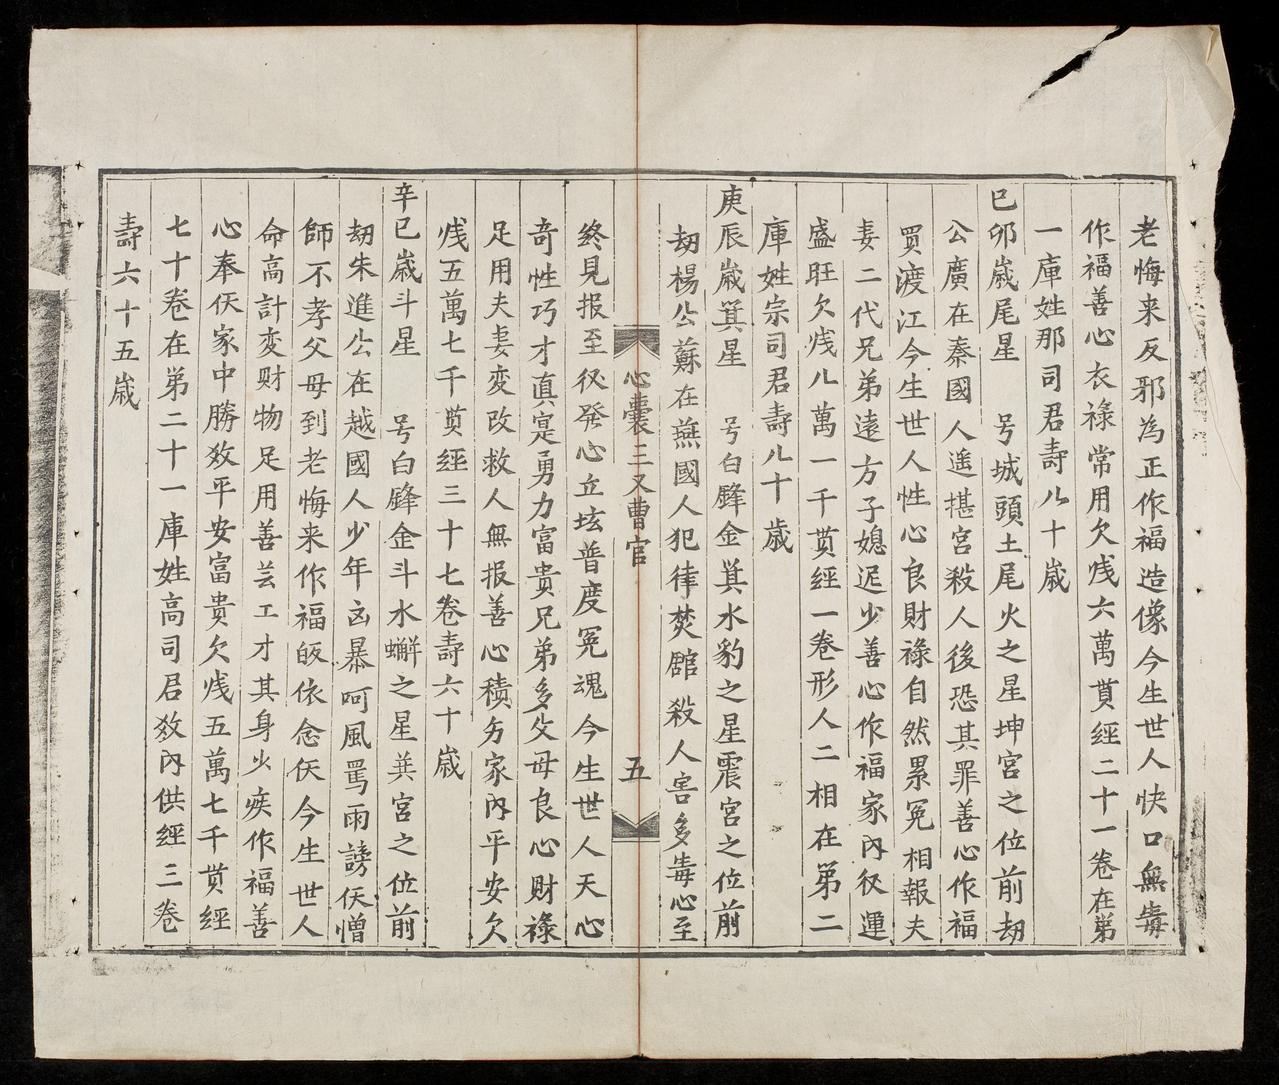 老悔来反邪為正作福造像今生世人快口無毒
作福善心衣祿常用欠𬥺六萬貫經二十一卷在第
一庫姓那司君壽八十歲
已卯歲尾星 号城頭土尾火之星坤宮之位前刼
公廣在秦國人遙揕宮殺人後恐其罪善心作福
買渡江今生世人性心良財祿自然累冤相報夫
妻二代兄弟遠方子媳迟少善心作福家內役運
盛旺欠𬥺八萬一千貫經一卷形人二相在第二
庫姓宗司君壽八十歲
庚辰歲箕星 号白鋒金箕水豹之星震宮之位前
刼楊公蘇在燕國人犯律焚舘殺人害多毒心至
終見报至役發心立坛普度冤魂今生世人天心
奇性巧才直寔勇力富贵兄弟多父母良心财祿
足用夫妻变改救人無报善心積夯家內平安欠
𬥺五萬七千貫經三十七卷壽六十歲
辛巳歲斗星 号白鋒金斗水蠏之星㢲宮之位前
刼朱進公在越國人少年凶暴呵風罵雨謗仸僧
師不孝父母到老悔来作福皈依念仸今生世人
命高計变财物足用善芸工才其身少疾作福善
心奉仸家中勝效平安富貴欠𬥺五萬七千貫經
七十卷在第二十一庫姓高司君效內供經三卷
壽六十五歲
心囊三又曹官 五